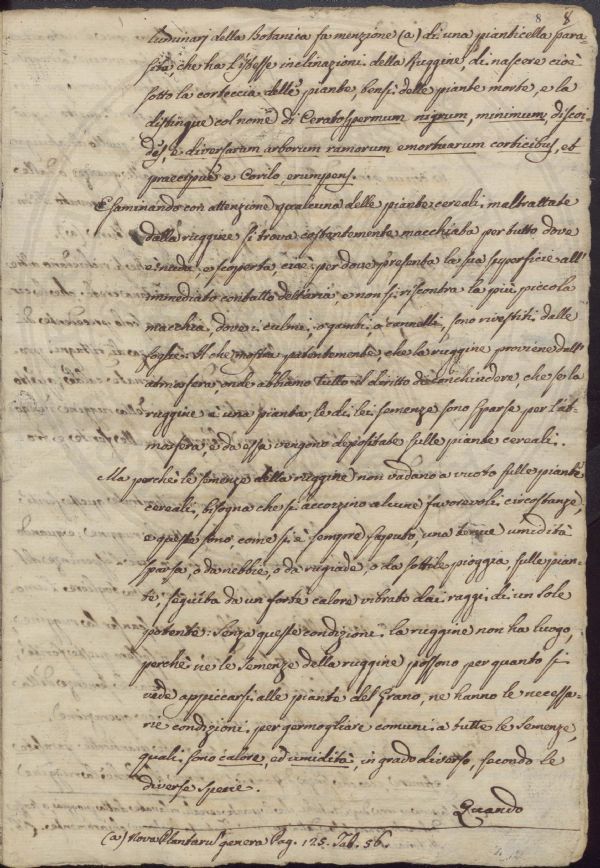 8 8
luminarj della Botanica fa menzione (a) di una pianticella para-
sita, che ha l'istesse inclinazioni della Ruggine, di nascere cioè
sotto la corteccia delle piante, bensì delle piante morte, e la
distingue col nome di Ceratospermum nigrum, minimum, discoi-
des, e diversarum arborum ramorum emortuarum corticibus, et
praecipue e Corilo, erumpens.
Esaminando con attenzione qualcuna delle piante cereali maltrattate
dalla ruggine si trova costantemente macchiata per tutto dove
è nuda, e scoperta, cioè per dove presenta la sua superficie all'
immediato contatto dell'aria, e non si riscontra la più piccola
macchia, dove i culmi, o gambi, o cannelli, sono rivestiti dalle
foglie. Il che mostra patentemente, che la ruggine proviene dall'
atmosfera, onde abbiamo tutto il diritto di conchiudere, che se la
ruggine è una pianta, le di lei semenze sono sparse per l'at-
mosfera, e da essa vengono depositate sulle piante cereali.
Ma perchè le semenze della ruggine non vadano a vuoto sulle piante
cereali, bisogna che si accozzino alcune favorevoli circostanze,
e queste sono, come si è sempre saputo, una tenue umidità
sparsa, o da nebbie, o da rugiade, o da sottile pioggia, sulle pian-
te, seguita da un forte calore vibrato dai raggi di un Sole
potente. Senza queste condizioni la ruggine non ha luogo,
perchè ne le Semenze della ruggine possono per quanto si
vede appiccarsi alle piante del Grano, ne hanno le necessa-
rie condizioni per germogliare comuni a tutte le Semenze,
quali sono calore, ed umidità, in grado diverso, secondo le
diverse specie.
Quando
(a) Nova Plantaru genera Pag. 125. Tab. 56.